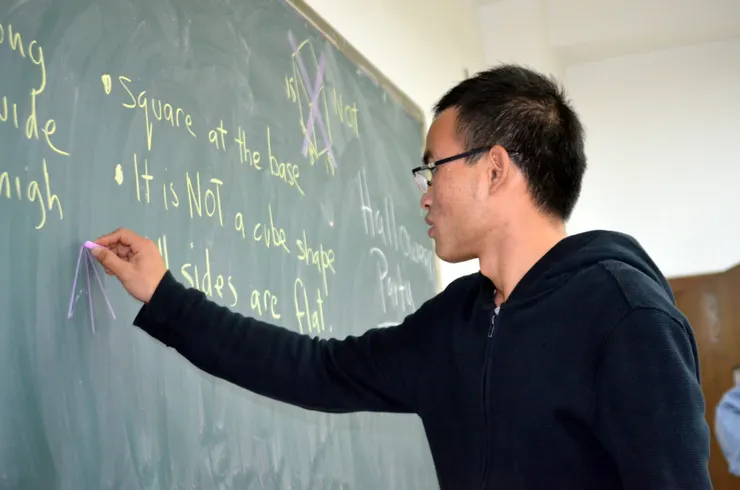 ong
wide
high
• Square at the base
• It is NOT a cube shape
ll sides are flat.
is Not
Halloween
Party